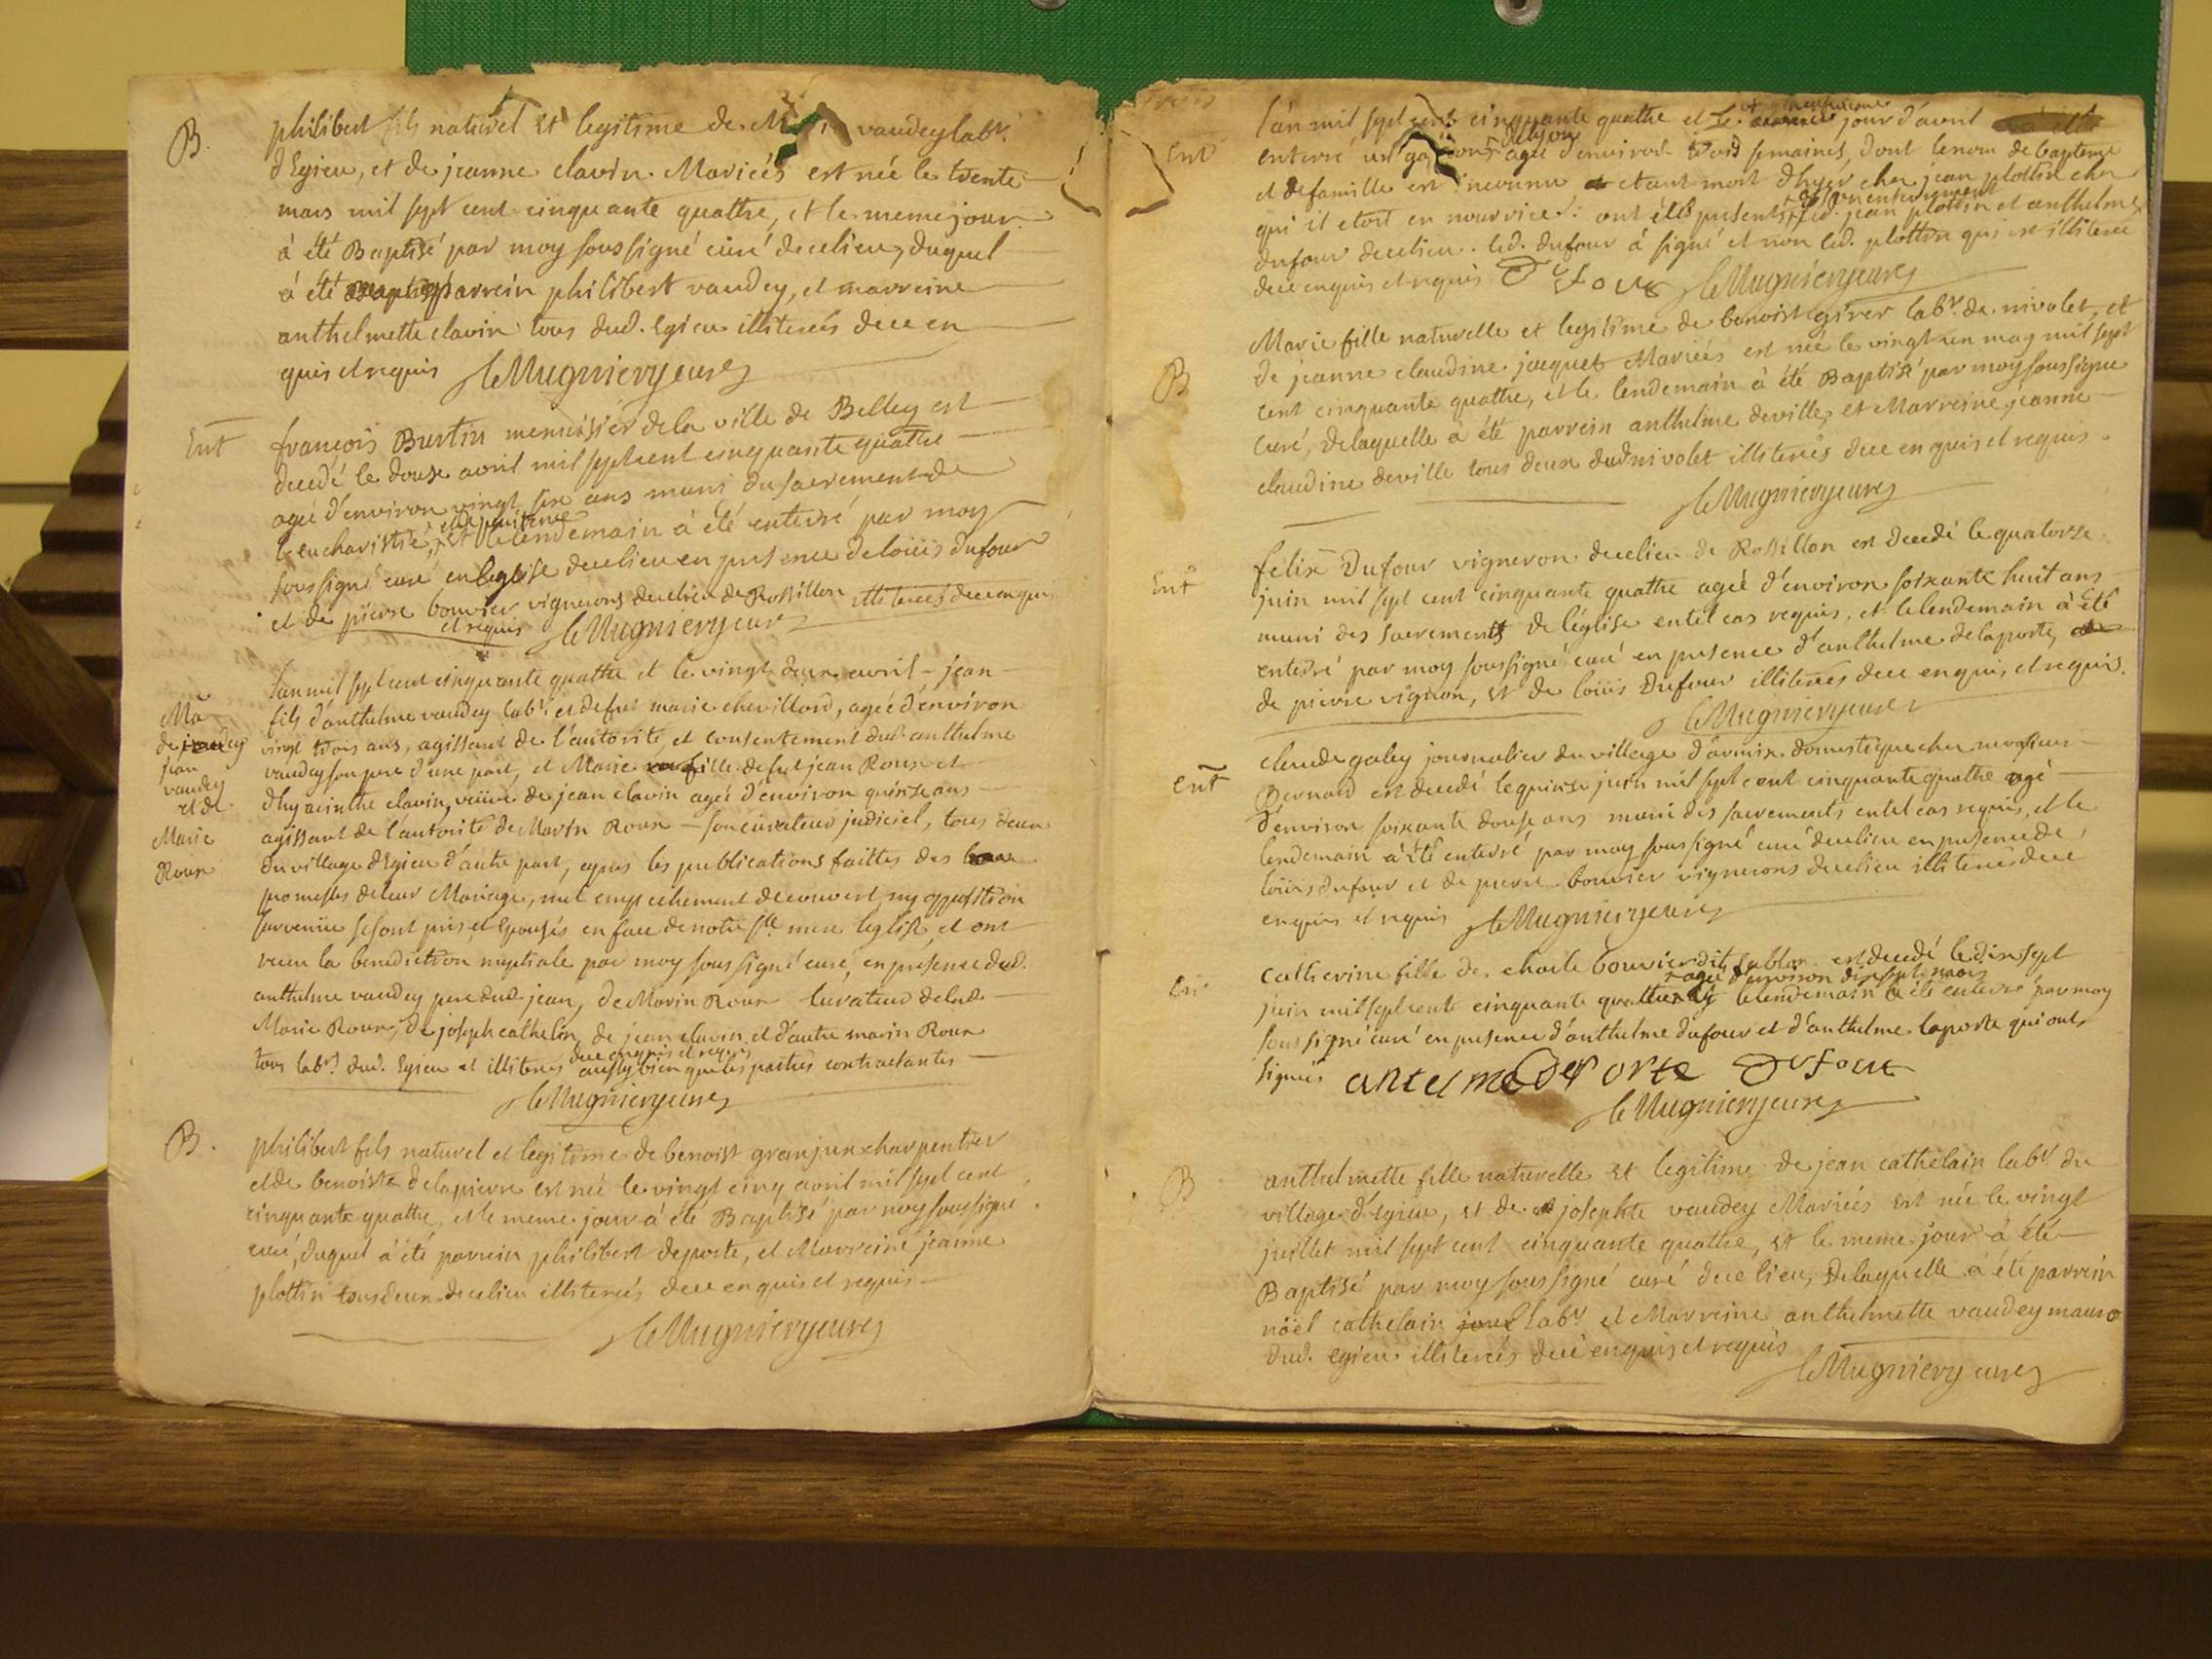 B. philibert fils naturel et legitime de vaudey labr.
d'Egieu, et de jeanne clavin Mariées est née le trente
mars mil sept cent cinquante quattre, et le meme jour
à été Baptisé par moy soussigné curé de ce lieu, duquel
à été parrein philibert vaudey, et marreine
anthelmette clavin tous dud. Egieu illiterés de ce en
quis et requis leMugniery curé
Ent françois Burtin menuisier de la ville de Belley est
decedé le douze avril mil sept cent cinquante quattre
ageé d'environ vingt six ans muni du sacrement de
et de penitence
l'eucharistie, et le lendemain à été enterré par moy
soussigné curé en l'eglise de ce lieu en presence de loüis dufour
et de pierre bouvier vignerons de ce lieu de Rossillon illiterés de ce enquis
et requis leMugniery curé
L'an mil sept cent cinquante quattre et le vingt deux avril - jean
Ma fils d'anthelme vaudey labr. et de fut marie chevillard, ageé d'environ
de vingt trois ans, agissant de l'autorité, et consentement dud. anthelme
jean vaudey vaudey son pere d'une part, et Marie fille de fut jean Roux et
et de d'hyacinthe clavin, veüve de jean clavin ageé d'environ quinze ans
Marie agissant de l'autorité de Marin Roux - son curateur judiciel, tous deux
Roux du village d'Egieu d'autre part, apres les publications faittes des
promesses de leur Mariage, nul empechement decouvert, ny opposition
survenüe se sont pris, et Epousés en face de notre ste. mere l'eglise, et ont
receu la benediction nuptiale par moy soussigné curé, en presence dud.
anthelme vaudey pere dud. jean, de Marin Roux curateur de lad.
Marie Roux, de joseph cathelin, de jean clavin et d'autre marin Roux
de ce enquis et requis
tous labrs. dud. Egieu et illiterés aussy bien que les parties contractantes
leMugniery curé
B. philibert fils naturel et legitime de benoist granjux charpentier
et de benoiste delapierre est né le vingt cinq avril mil sept cent
cinquante quattre, et le meme jour à été Baptisé par moy soussigné
curé, duquel à été parrein philibert deporte, et Marreine jeanne
plottin tous deux de ce lieu illiterés de ce enquis et requis
leMugniery curé
L'an mil sept cent cinquante quattre et le jour d'avril
Ent enterré un garçon de lyon ageé d'environ trois semaines, dont le nom de bapteme
et de famille est inconnu etant mort d'hyer chez jean plottin chez
qui il etoit en nourrice: ont étés presents led. jean plottin et anthelme
dufour de ce lieu. led. dufour à signé et non led. plottin qui est illiteré
de ce enquis et requis DuFour leMugniery curé
Marie fille naturelle et legitime de benoist girer labr. de nivolet, et
B de jeanne claudine jaquet Mariées est née le vingt un may mil sept
cent cinquante quattre, et le lendemain à été Baptisé par moy soussigné
curé, de laquelle à été parrein anthelme deville, et Marreine jeanne
claudine deville tous deux dud. nivolet illiterés de ce enquis et requis.
leMugniery curé
felix Dufour vigneron de ce lieu de Rossillon est decedé le quatorze
Ent juin mil sept cent cinquante quattre ageé d'environ soixante huit ans
muni des sacrements de l'église en tel cas requis, et le lendemain à été
enterré par moy soussigné curé en presence d'anthelme delaporte,
de pierre vignon, et de loüis Dufour illiterés de ce enquis, et requis.
leMugniery curé
claude galey journalier du village d'armix domestique chez monsieur
Ent Bernard est decedé le quinze juin mil sept cent cinquante quattre agé
d'environ soixante douze ans muni des sacrements en tel cas requis, et le
lendemain à été enterré par moy soussigné curé de ce lieu en presence de
loüis dufour et de pierre bouvier vignerons de ce lieu illiterés de ce
enquis et requis leMugniery curé
En catherine fille de charle bouvier dit est decedé le dix sept
ageé d'environ dix sept mois
juin mil sept cent cinquante quattre et le lendemain à été enterré par moy
soussigné curé en presence d'anthelme dufour et d'anthelme laporte qui ont
signés antelme DePorte DuFour
leMugniery curé
B anthelmette fille naturelle et legitime de jean cathelain labr. du
village d'Egieu, et de josephte vaudey Mariées est née le vingt
juillet mil sept cent cinquante quattre, et le meme jour à été
Baptisé par moy soussigné curé de ce lieu, de laquelle à été parrein
noël cathelain labr. et Marreine anthelmette vaudey
dud. egieu illiterés de ce enquis et requis
leMugniery curé